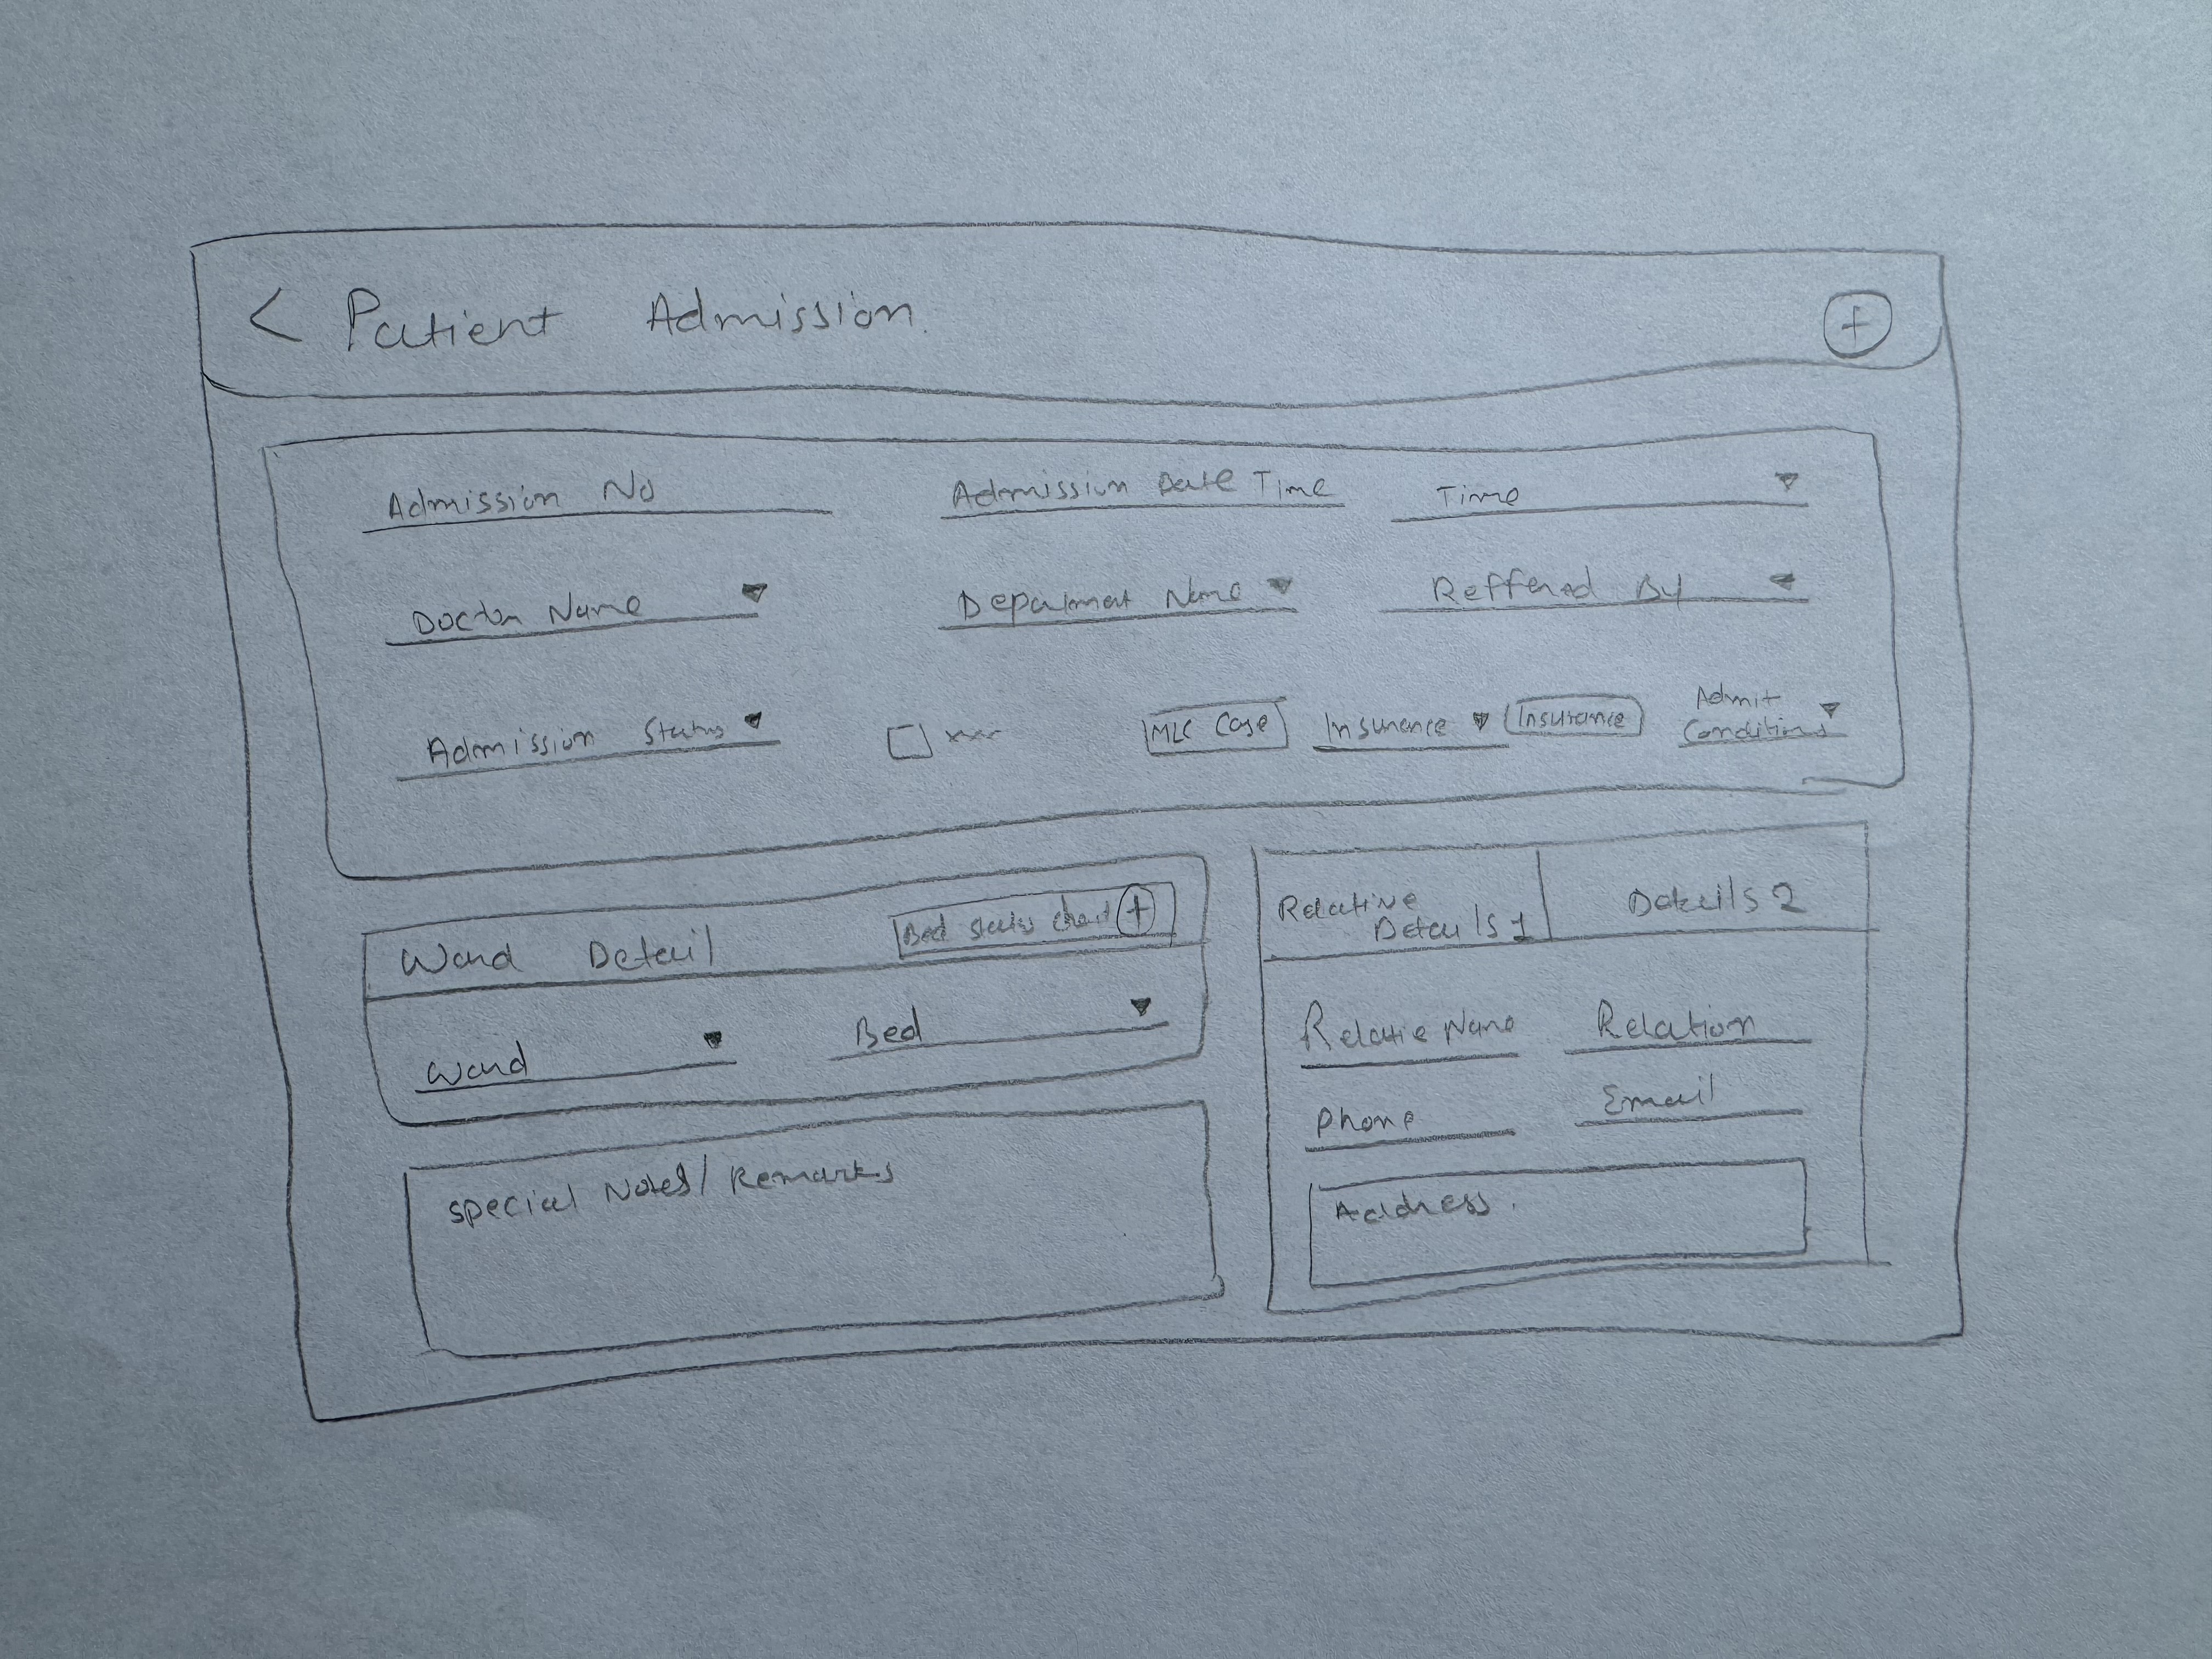 < Patient Admission
Admission No Admission Date Time Time
Doctor Name Department Name Reffered By
Admission Status MLC Case Insurance Insurance Admit Conditions
Ward Detail Bed status chart +
Ward Bed
Special Notes/Remarks
Relative Details 1 Details 2
Relatie Name Relation
Phone Email
Address.